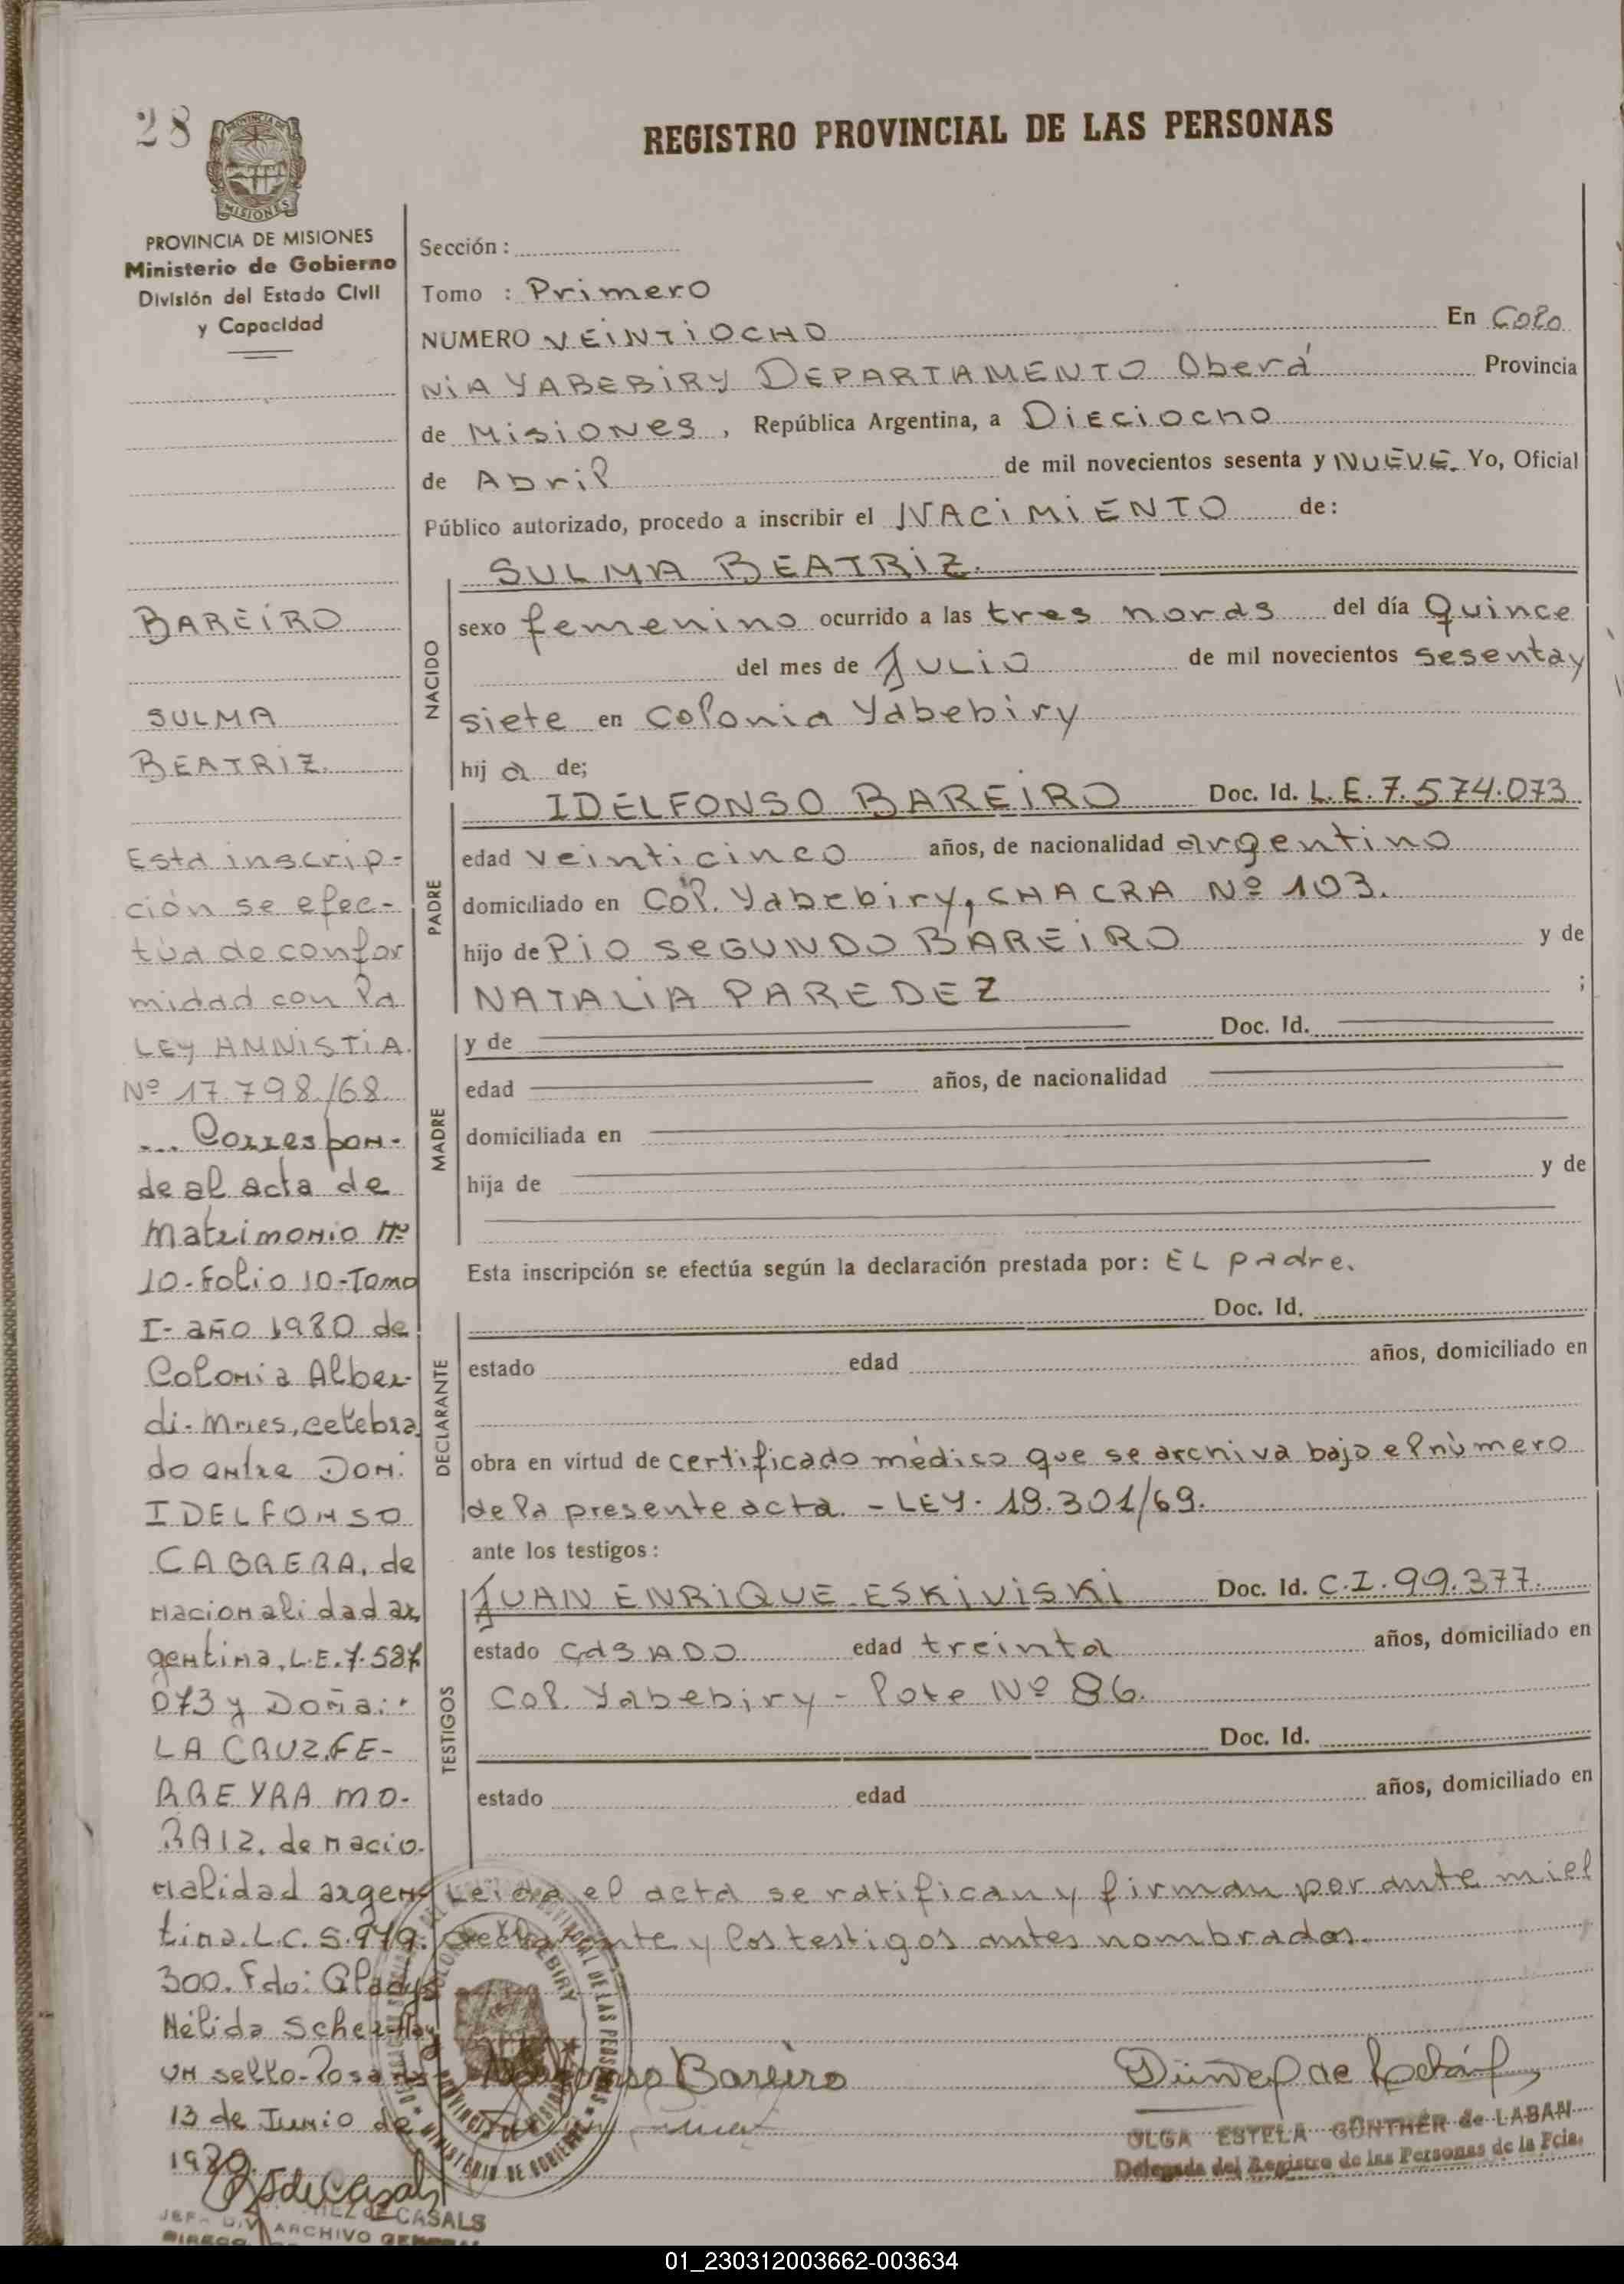 28
PROVINCIA DE
MISIONES
PROVINCIA DE MISIONES
Ministerio de Gobierno
División del Estado Civil
y Capacidad
BAREIRO
SULMA
BEATRIZ.
Esta inscrip-
ción se efec-
túa de confor
midad con la
LEY AMNISTIA.
Nº 17.798./68.
... Correspon-
de al acta de
matrimonio Nº
10-Folio 10-Tomo
I- año 1980 de
Colonia Alber-
di-Mnes, celebra
do entre Don:
IDELFONSO
CABRERA, de
nacionalidad ar
gentina, L.E.7.587
073 y Doña:
LA CRUZ FE-
RREYRA MO-
RAIZ. de nacio-
nalidad argen
tina. L.C. 5.979.
300. Fdo: Gladys
Nélida Scher-Hay
un sello-Posadas
13 de Junio de
1980.
DE CASALS
JEFA DIV. ARCHIVO GENERAL
REGISTRO PROVINCIAL DE LAS PERSONAS
Sección :
Tomo : Primero
NUMERO VEINTIOCHO En Colo
NIA YABEBIRY DEPARTAMENTO Oberá Provincia
de Misiones, República Argentina, a Dieciocho
de Abril de mil novecientos sesenta y NUEVE. Yo, Oficial
Público autorizado, procedo a inscribir el NACIMIENTO de:
NACIDO
SULMA BEATRIZ.
sexo femenino ocurrido a las tres horas del día Quince
del mes de Julio de mil novecientos sesenta y
siete en Colonia Yabebiry
hij a de;
PADRE
IDELFONSO BAREIRO Doc. Id. L.E.7.574.073
edad veinticinco años, de nacionalidad argentino
domiciliado en Col. Yabebiry, CHACRA Nº 103.
hijo de PIO SEGUNDO BAREIRO y de
NATALIA PAREDEZ ;
MADRE
y de Doc. Id.
edad años, de nacionalidad
domiciliada en
hija de y de
Esta inscripción se efectúa según la declaración prestada por: EL padre.
DECLARANTE
Doc. Id.
estado edad años, domiciliado en
obra en virtud de certificado médico que se archiva bajo el número
de la presente acta. - LEY. 18.301/69.
ante los testigos :
TESTIGOS
JUAN ENRIQUE ESKIVISKI Doc. Id. C.I.99.377.
estado CASADO edad treinta años, domiciliado en
Col. Yabebiry - lote Nº 86.
Doc. Id.
estado edad años, domiciliado en
Leida el acta se ratifican y firman por ante mi el
declarante y los testigos antes nombrados.
Idelfonso Bareiro
OLGA ESTELA GÜNTHER de LABAN
Delegada del Registro de las Personas de la Pcia.
01_230312003662-003634